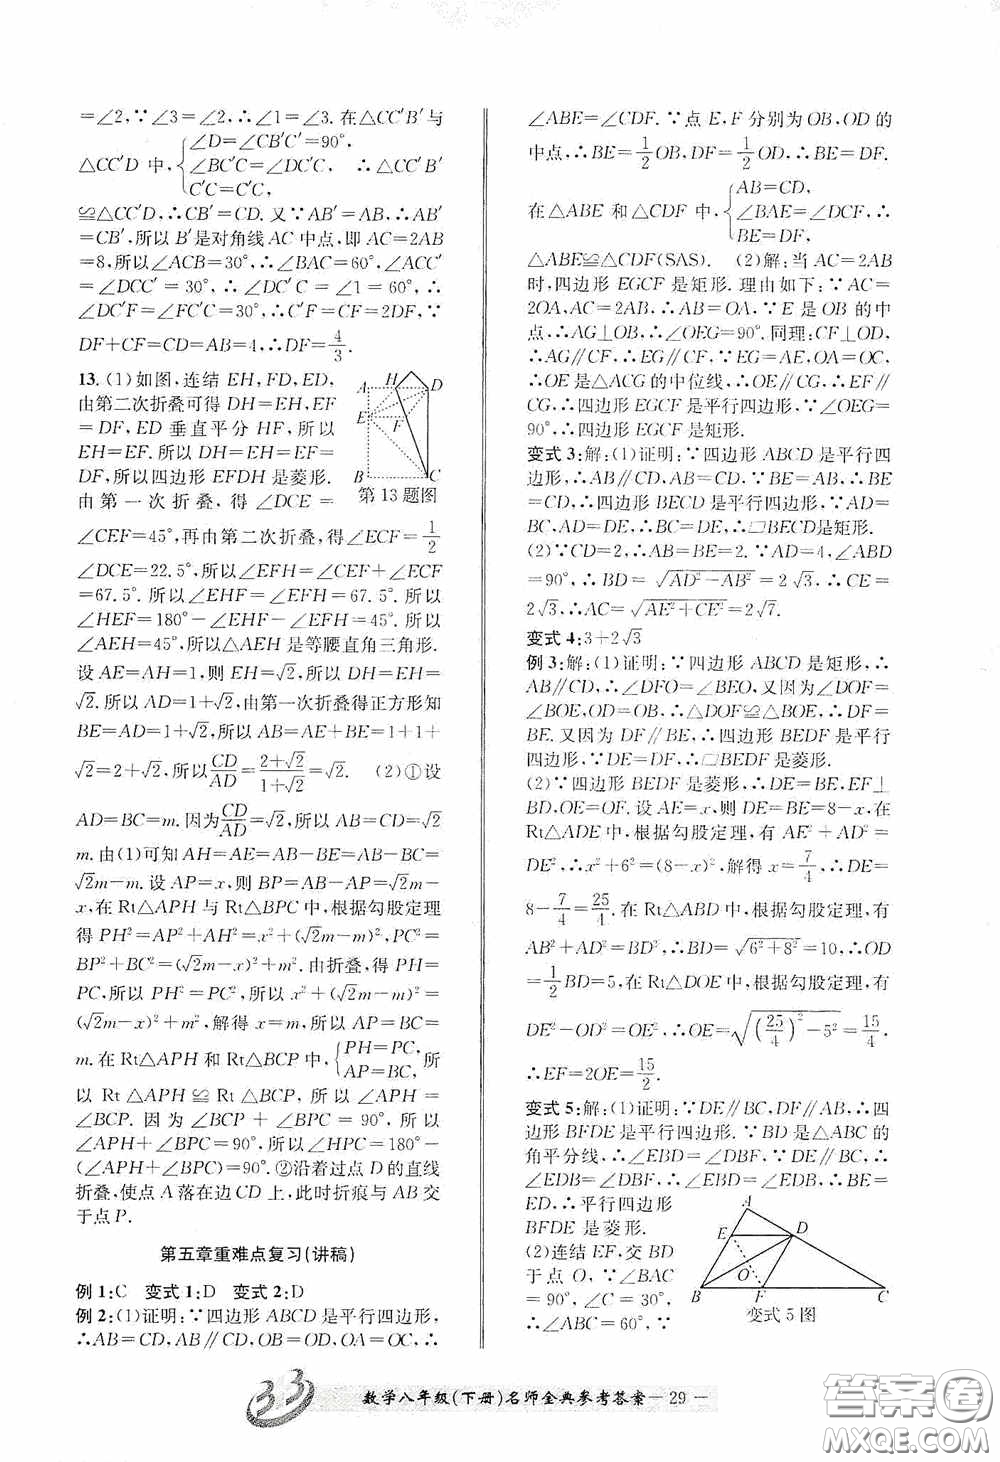 =∠2,∵∠3=∠2,∴∠1=∠3.在△CC′B′与
△CC′D 中,{∠D=∠CB′C′=90°,
∠BC′C=∠DC′C,
C′C=C′C, ∴△CC′B′
≌△CC′D,∴CB′=CD.又∵AB′=AB,∴AB′
=CB′,所以B′是对角线AC中点,即AC=2AB
=8,所以∠ACB=30°,∴∠BAC=60°,∠ACC′
=∠DCC′=30°,∴∠DC′C=∠1=60°,∴
∠DC′F=∠FC′C=30°,∴C′F=CF=2DF,∵
DF+CF=CD=AB=4,∴DF=4/3.
13.(1)如图,连结EH,FD,ED,
由第二次折叠可得DH=EH,EF
=DF,ED垂直平分HF,所以
EH=EF.所以DH=EH=EF=
DF,所以四边形EFDH是菱形.
由第一次折叠,得∠DCE=
A H D
E F
B C
第13题图
∠CEF=45°,再由第二次折叠,得∠ECF=1/2
∠DCE=22.5°,所以∠EFH=∠CEF+∠ECF
=67.5°.所以∠EHF=∠EFH=67.5°.所以
∠HEF=180°-∠EHF-∠EFH=45°.所以
∠AEH=45°,所以△AEH是等腰直角三角形.
设AE=AH=1,则EH=√2,所以DH=EH=
√2.所以AD=1+√2,由第一次折叠得正方形知
BE=AD=1+√2,所以AB=AE+BE=1+1+
√2=2+√2,所以CD/AD=(2+√2)/(1+√2)=√2. (2)①设
AD=BC=m.因为CD/AD=√2,所以AB=CD=√2
m.由(1)可知AH=AE=AB-BE=AB-BC=
√2m-m.设AP=x,则BP=AB-AP=√2m-
x,在Rt△APH与Rt△BPC中,根据勾股定理
得PH²=AP²+AH²=x²+(√2m-m)²,PC²=
BP²+BC²=(√2m-x)²+m².由折叠,得PH=
PC,所以PH²=PC²,所以x²+(√2m-m)²=
(√2m-x)²+m²,解得x=m,所以AP=BC=
m.在Rt△APH和Rt△BCP中,{PH=PC,
AP=BC,所
以Rt△APH≌Rt△BCP,所以∠APH=
∠BCP.因为∠BCP+∠BPC=90°,所以
∠APH+∠BPC=90°,所以∠HPC=180°-
(∠APH+∠BPC)=90°.②沿着过点D的直线
折叠,使点A落在边CD上,此时折痕与AB交
于点P.
第五章重难点复习(讲稿)
例1:C 变式1:D 变式2:D
例2:(1)证明:∵四边形ABCD是平行四边形,
∴AB=CD,AB∥CD,OB=OD,OA=OC,∴
∠ABE=∠CDF.∵点E,F分别为OB,OD的
中点,∴BE=1/2OB,DF=1/2OD,∴BE=DF.
在△ABE和△CDF中,{AB=CD,
∠BAE=∠DCF,
BE=DF, ∴
△ABE≌△CDF(SAS). (2)解:当AC=2AB
时,四边形EGCF是矩形.理由如下:∵AC=
2OA,AC=2AB,∴AB=OA,∵E是OB的中
点,∴AG⊥OB,∴∠OEG=90°.同理:CF⊥OD,
∴AG∥CF,∴EG∥CF,∵EG=AE,OA=OC,
∴OE是△ACG的中位线,∴OE∥CG,∴EF∥
CG,∴四边形EGCF是平行四边形,∵∠OEG=
90°,∴四边形EGCF是矩形.
变式3:解:(1)证明:∵四边形ABCD是平行四
边形,∴AB∥CD,AB=CD,∵BE=AB,∴BE
=CD,∴四边形BECD是平行四边形,∵AD=
BC,AD=DE,∴BC=DE,∴□BECD是矩形.
(2)∵CD=2,∴AB=BE=2.∵AD=4,∠ABD
=90°,∴BD=√(AD²-AB²)=2√3,∴CE=
2√3,∴AC=√(AE²+CE²)=2√7.
变式4:3+2√3
例3:解:(1)证明:∵四边形ABCD是矩形,∴
AB∥CD,∴∠DFO=∠BEO,又因为∠DOF=
∠BOE,OD=OB,∴△DOF≌△BOE,∴DF=
BE.又因为DF∥BE,∴四边形BEDF是平行
四边形,∵DE=DF,∴□BEDF是菱形.
(2)∵四边形BEDF是菱形,∴DE=BE,EF⊥
BD,OE=OF.设AE=x,则DE=BE=8-x,在
Rt△ADE中,根据勾股定理,有AE²+AD²=
DE²,∴x²+6²=(8-x)²,解得x=7/4,∴DE=
8-7/4=25/4.在Rt△ABD中,根据勾股定理,有
AB²+AD²=BD²,∴BD=√(6²+8²)=10,∴OD
=1/2BD=5,在Rt△DOE中,根据勾股定理,有
DE²-OD²=OE²,∴OE=√((25/4)²-5²)=15/4,
∴EF=2OE=15/2.
变式5:解:(1)证明:∵DE∥BC,DF∥AB,∴四
边形BFDE是平行四边形.∵BD是△ABC的
角平分线,∴∠EBD=∠DBF,∵DE∥BC,∴
∠EDB=∠DBF,∴∠EBD=∠EDB,∴BE=
ED,∴平行四边形
BFDE是菱形.
(2)连结EF,交BD
于点O,∵∠BAC
=90°,∠C=30°,
∴∠ABC=60°,∵
A
E D
O
B F C
变式5图
33
数学八年级(下册)名师金典参考答案—29—
答案圈
MXQE.COM